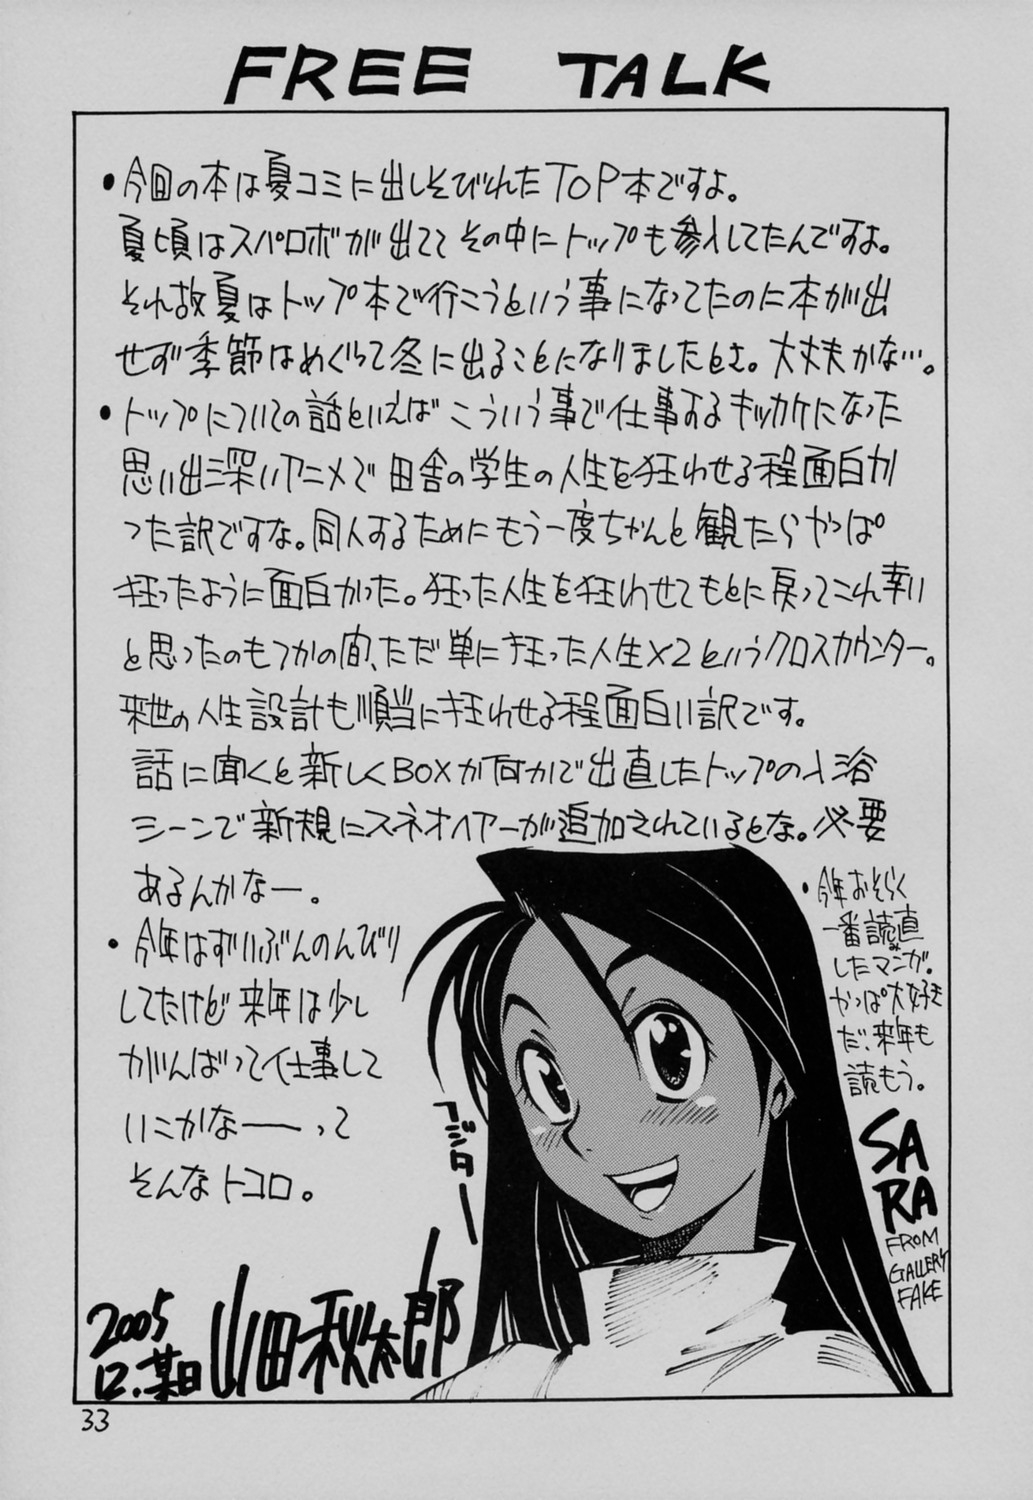 FREE TALK
・今回の本は夏コミに出しそびれたTOP本ですよ。
夏頃はスパロボが出てて その中にトップも参入してたんですよ。
それ故夏はトップ本で行こうという事になってたのに本が出
せず季節はめぐって冬に出ることになりましたとさ。大丈夫かな…。
・トップについての話といえば こういう事で仕事するキッカケになった
思い出深いアニメで 田舎の学生の人生を狂わせる程面白か
った訳ですな。同人するためにもう一度ちゃんと観たらやっぱ
狂ったように面白かった。狂った人生を狂わせてもとに戻ってこれ幸い
と思ったのもつかの間、ただ単に狂った人生×2というクロスカウンター。
来世の人生設計も順当に狂わせる程面白い訳です。
話に聞くと新しくBOXか何かで出直したトップの入浴
シーンで新規にスネオヘアーが追加されているとな。必要
あるんかなー。
・今年はずいぶんのんびり
してたけど 来年は少し
がんばって仕事して
いこかなーーって
そんなトコロ。
・今年おそらく
一番読み直
したマンガ。
やっぱ大好き
だ、来年も
読もう。
アジター
SARA
FROM
GALLERY
FAKE
2005
12.某日 山田秋太郎
33